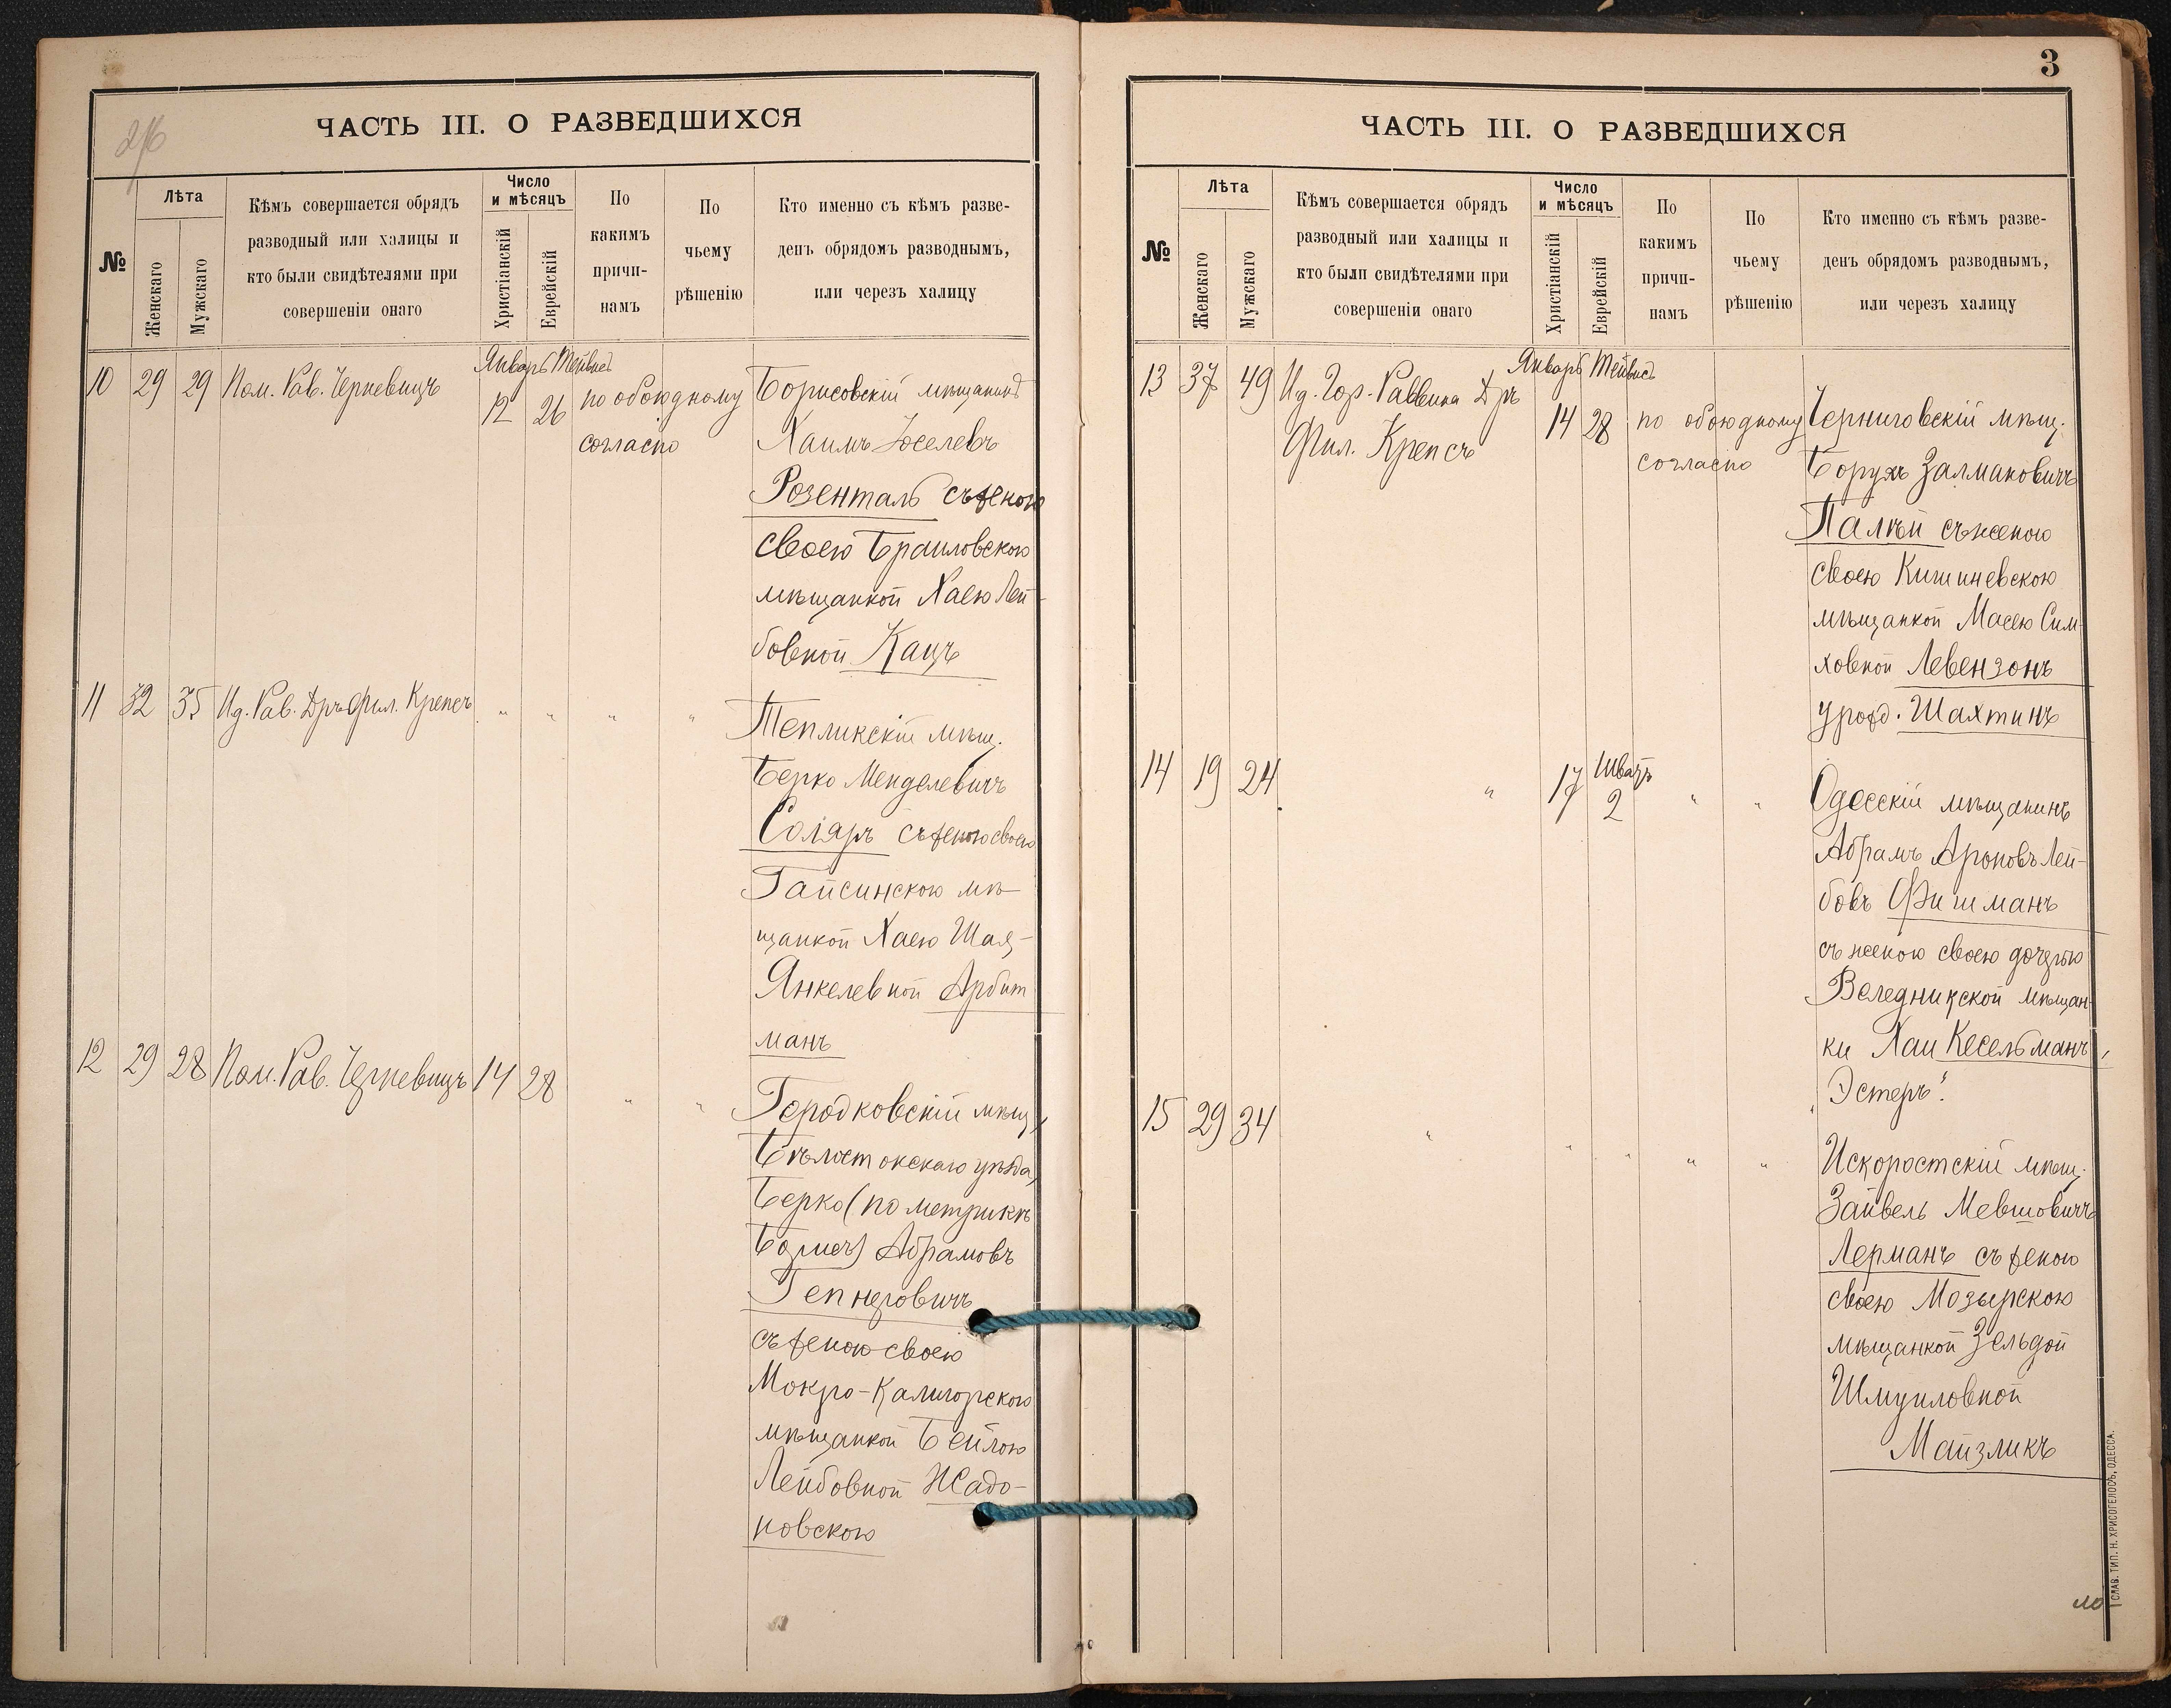 ЧАСТЬ III. О РАЗВЕДШИХСЯ
№
Лѣта
Женскаго
Мужскаго
Кѣмъ совершается обрядъ
разводный или халицы и
кто были свидѣтелями при
совершеніи онаго
Число
и мѣсяцъ
Христіанскій
Еврейскій
По
какимъ
причи-
намъ
По
чьему
рѣшенію
Кто именно съ кѣмъ разве-
денъ обрядомъ разводнымъ,
или черезъ халицу
Январь Тейвисъ
10 29 29 Пом. Рав. Черневицъ 12 26 по обоюдному Борисовскій мѣщанинъ
согласію Хаимъ Іоселевъ
Розенталь съ женою
своею Браиловскою
мѣщанкой Хаею Лей-
бовной Кацъ
11 32 35 Ид. Рав. Дръ Фил. Крепсъ " " " " Тепликскій мѣщ.
Берко Менделевичъ
Соляръ съ женою своею
Гайсинскою мѣ-
щанкой Хаею Шая-
Янкелевной Арбит
манъ
12 29 28 Пом. Рав. Черневицъ 14 28 " " Городковскій мѣщ.,
Бѣлостокскаго уѣзда,
Берко (по метрикѣ
Абрамовъ
Гепнеровичъ
съ женою своею
Мокро-Калигорскою
мѣщанкой Бейлою
Лейбовной Жадо-
новскою
3
ЧАСТЬ III. О РАЗВЕДШИХСЯ
№
Лѣта
Женскаго
Мужскаго
Кѣмъ совершается обрядъ
разводный или халицы и
кто были свидѣтелями при
совершеніи онаго
Число
и мѣсяцъ
Христіанскій
Еврейскій
По
какимъ
причи-
намъ
По
чьему
рѣшенію
Кто именно съ кѣмъ разве-
денъ обрядомъ разводнымъ,
или черезъ халицу
Январь Тейвисъ
13 37 49 Ид. Гор. Раввина Дръ 14 28 по обоюдному Черниговскій мѣщ.
Фил. Крепсъ согласію Борухъ Залмановичъ
Палѣй съ женою
своею Кишиневскою
мѣщанкой Масею Сим-
ховной Левензонъ
урожд. Шахтинъ
Шватъ
14 19 24 " 17 2 " " Одесскій мѣщанинъ
Абрамъ Ароновъ Лей-
бовъ Фишманъ
съ женою своею дочерью
Веледникской мѣщан-
ки Хаи Кесельманъ,
"Эстеръ".
15 29 34 " " " " " Искоростскій мѣщ.
Зайвель Мевшовичъ
Лерманъ съ женою
своею Мозырскою
мѣщанкой Зельдой
Шмуиловной
Майзликъ
СЛАВ. ТИП. Н. ХРИСОГЕЛОСЪ, ОДЕССА.